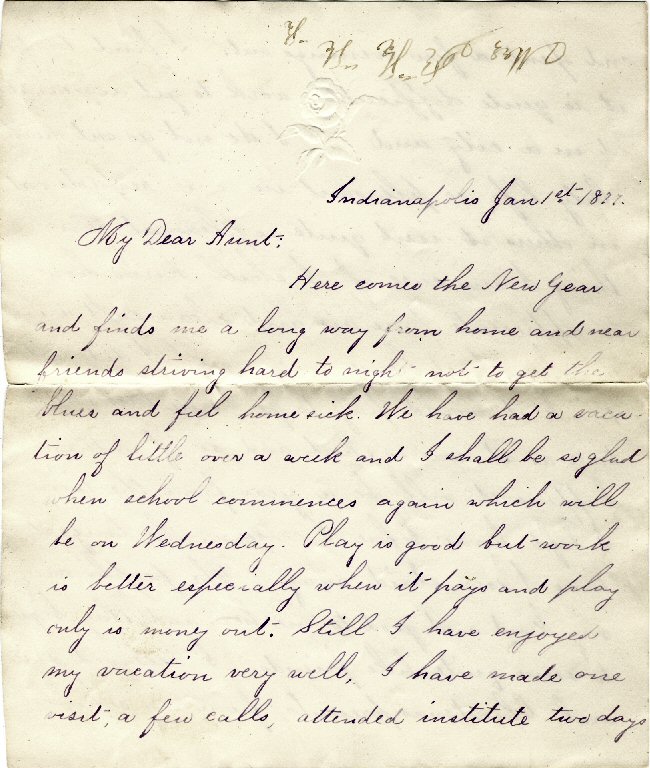 Indianapolis Jan 1st 1877.
My Dear Aunt:
Here comes the New Year
and finds me a long way from home and near
friends striving hard to night not to get the
blues and feel home sick. We have had a vaca-
tion of little over a week and I shall be so glad
when school commences again which will
be on Wednesday. Play is good but work
is better especially when it pays and play
only is money out. Still I have enjoyed
my vacation very well, I have made one
visit, a few calls, attended institute two days